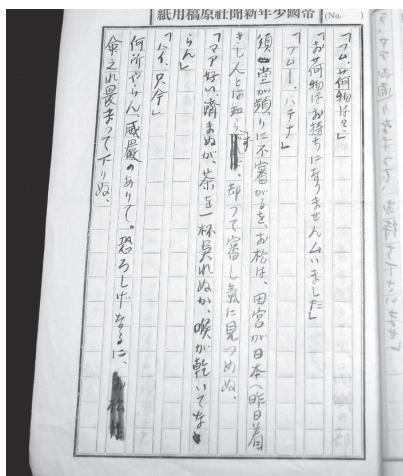 帝國少年新聞社原稿用紙 (No.      )
「フム、荷物は?」
「お荷物はお持ちになりませんムいました」
「フムー、ハテナ」
須堂が頻りに不審がるを、お松は、田宮が日本へ昨日着
きし人とは知らず、却つて審し氣に見つめぬ、
「マア好い、濟まぬが茶を一杯呉れぬか、喉が乾いてな
らん」
「ハイ、只今」
何所やらん威嚴のありて。恐ろしげなるに、
命之れ畏まつて下りぬ、